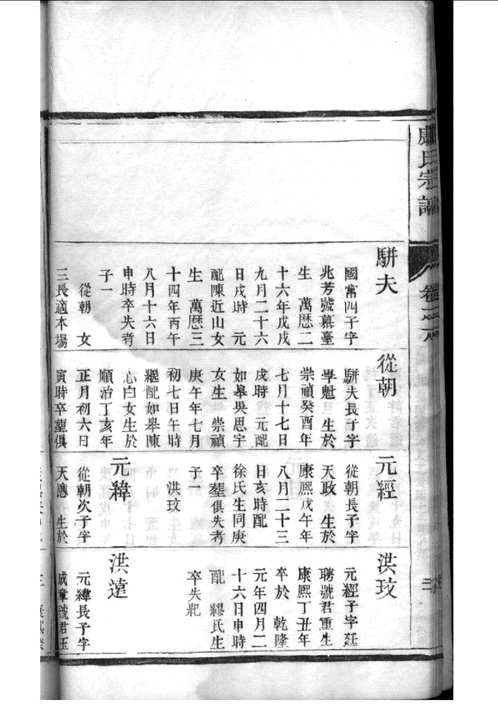 盧氏宗譜
卷之
駢夫
國當四子字
兆芳號慕臺
生 萬歷二
十六年戊戌
九月二十六
日戌時 元
配陳近山女
生 萬歷三
十四年丙午
八月十六日
申時卒失考
子一
從朝 女
三長適本場
從朝
駢夫長子字
學魁 生於
崇禎癸酉年
七月十七日
戌時 元配
如皋吳思宇
女生 崇禎
庚午年七月
初七日午時
繼配如皋陳
心白女生於
順治丁亥年
正月初六日
寅時卒塟俱
元經
從朝長子字
天政 生於
康熙戊午年
八月二十三
日亥時配
徐氏生同庚
卒塟俱失考
子一
洪玟
元緯
從朝次子字
天應 生於
洪玟
元經子字廷
聘號君重生
康熙丁丑年
卒於 乾隆
元年四月二
十六日申時
配 繆氏生
卒失紀
洪逵
元緯長子字
成章號君玉